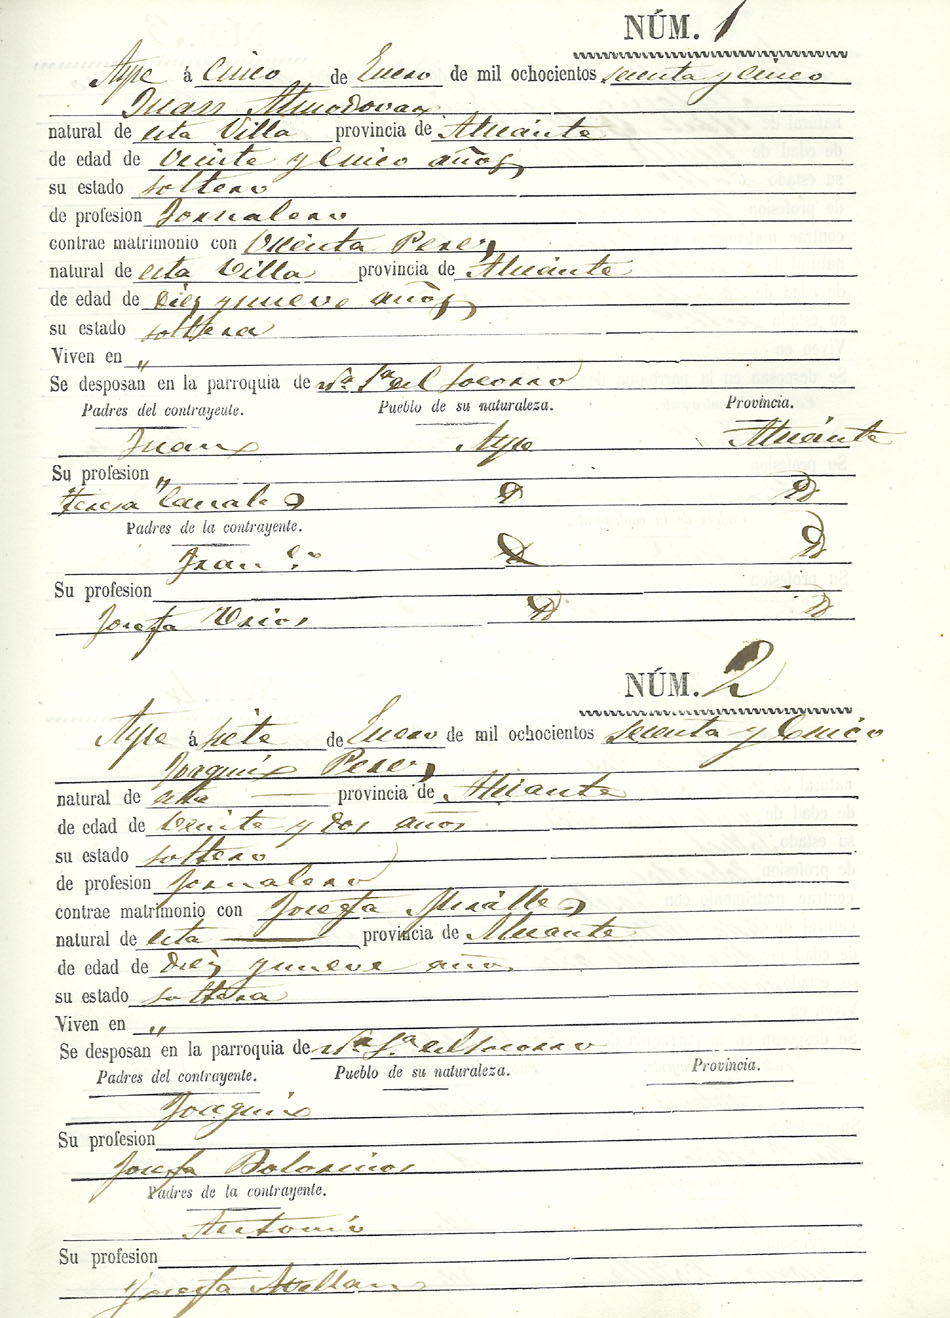 NÚM. 1
Aspe á Cinco de Enero de mil ochocientos setenta y Cinco
Juan Almodovar
natural de esta Villa provincia de Alicante
de edad de Veinte y Cinco años
su estado soltero
de profesion Jornalero
contrae matrimonio con Vicenta Perez
natural de esta Villa provincia de Alicante
de edad de Diez y nueve años
su estado soltera
Viven en "
Se desposan en la parroquia de Nª Sª del Socorro
Padres del contrayente. Pueblo de su naturaleza. Provincia.
Juan Aspe Alicante
Su profesion "
Teresa D D
Padres de la contrayente.
Franco D D
Su profesion
Josefa D D
NÚM. 2
Aspe á siete de Enero de mil ochocientos setenta y Cinco
Joaquin Perez
natural de esta — provincia de Alicante
de edad de Veinte y dos años
su estado soltero
de profesion Jornalero
contrae matrimonio con Josefa Miralles
natural de esta — provincia de Alicante
de edad de Diez y nueve años
su estado soltera
Viven en "
Se desposan en la parroquia de Nª Sª del Socorro
Padres del contrayente. Pueblo de su naturaleza. Provincia.
Joaquin
Su profesion
Josefa Botorinos
Padres de la contrayente.
Antonio
Su profesion
Josefa Avellan